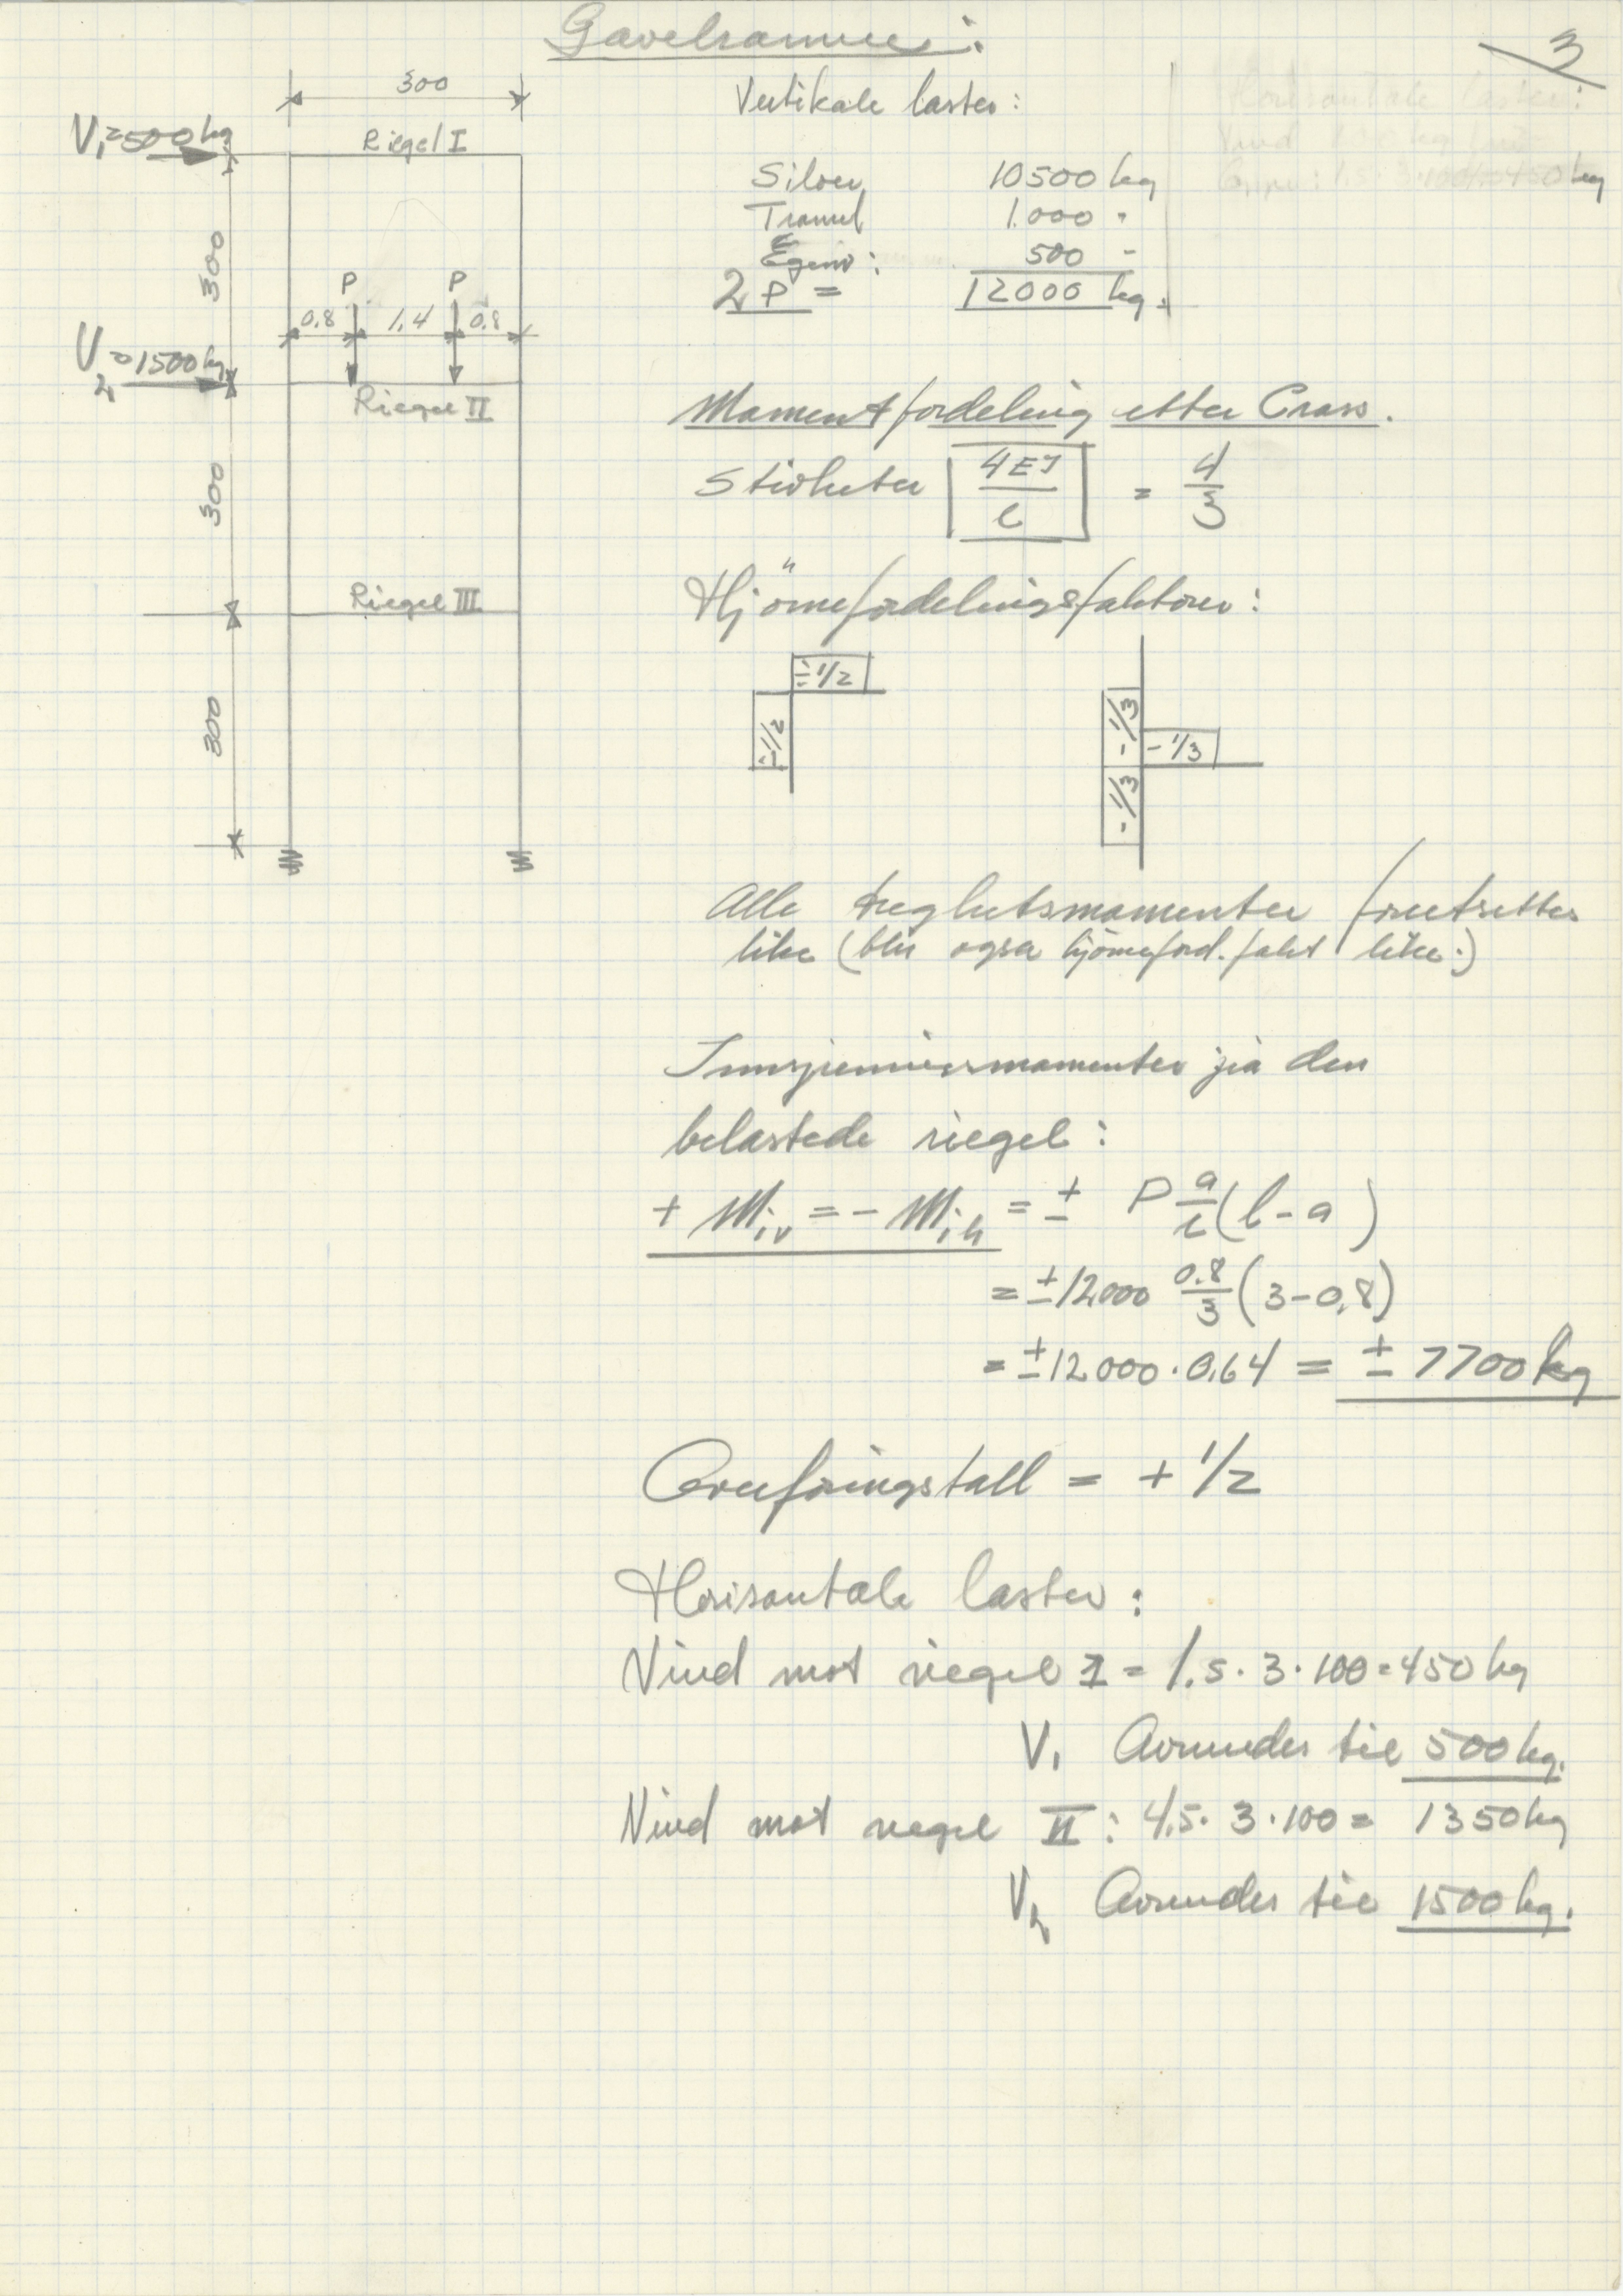 Gavelramme:
3
300
V₁=500kg
Riegel I
300
P P
0.8 1.4 0.8
V₂=1500kg
Riegel II
300
Riegel III
300
Vertikale laster:
Siloer 10500 kg
1.000 "
Egenv: 500 -
2P = 12000 kg.
Horisontale laster:
Vind 100 kg
1.5·3·100=450 kg
Momentfordeling etter Cross.
Stivheter 4EJ/l = 4/3
Hjörnefordelingsfaktorer:
÷1/2
÷1/2
-1/3
-1/3
-1/3
Alle treghetsmomenter forutsettes
like (blir også hjörneford. fakt like.)
Innspenningsmomenter på den
belastede riegel:
+ Miv = - Mih = ± P a/l (l-a)
= ±12000 0.8/3 (3-0,8)
= ±12000·0,64 = ± 7700kg
Overföringstall = + 1/2
Horisontale laster:
Vind mot riegel I = 1.5·3·100=450kg
V₁ Avrundes til 500kg.
Vind mot riegel II: 4.5·3·100= 1350kg
V₂ Avrundes til 1500kg.